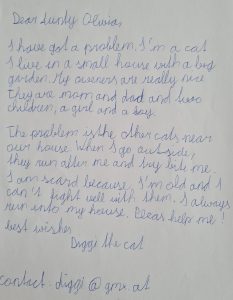 Dear Aunty Olivia,
I have got a problem. I'm a cat
I live in a small house with a big
garden. My owners are really nice
They are mom and dad and two
children, a girl and a boy.
The problem is the other cats near
our house. When I go outside,
they run after me and try bit me.
I am scard because, I'm old and I
can't fight well with them. I always
run into my house. Pleas help me!
best wishes
Diggi the cat
contact: diggi@gmx.at